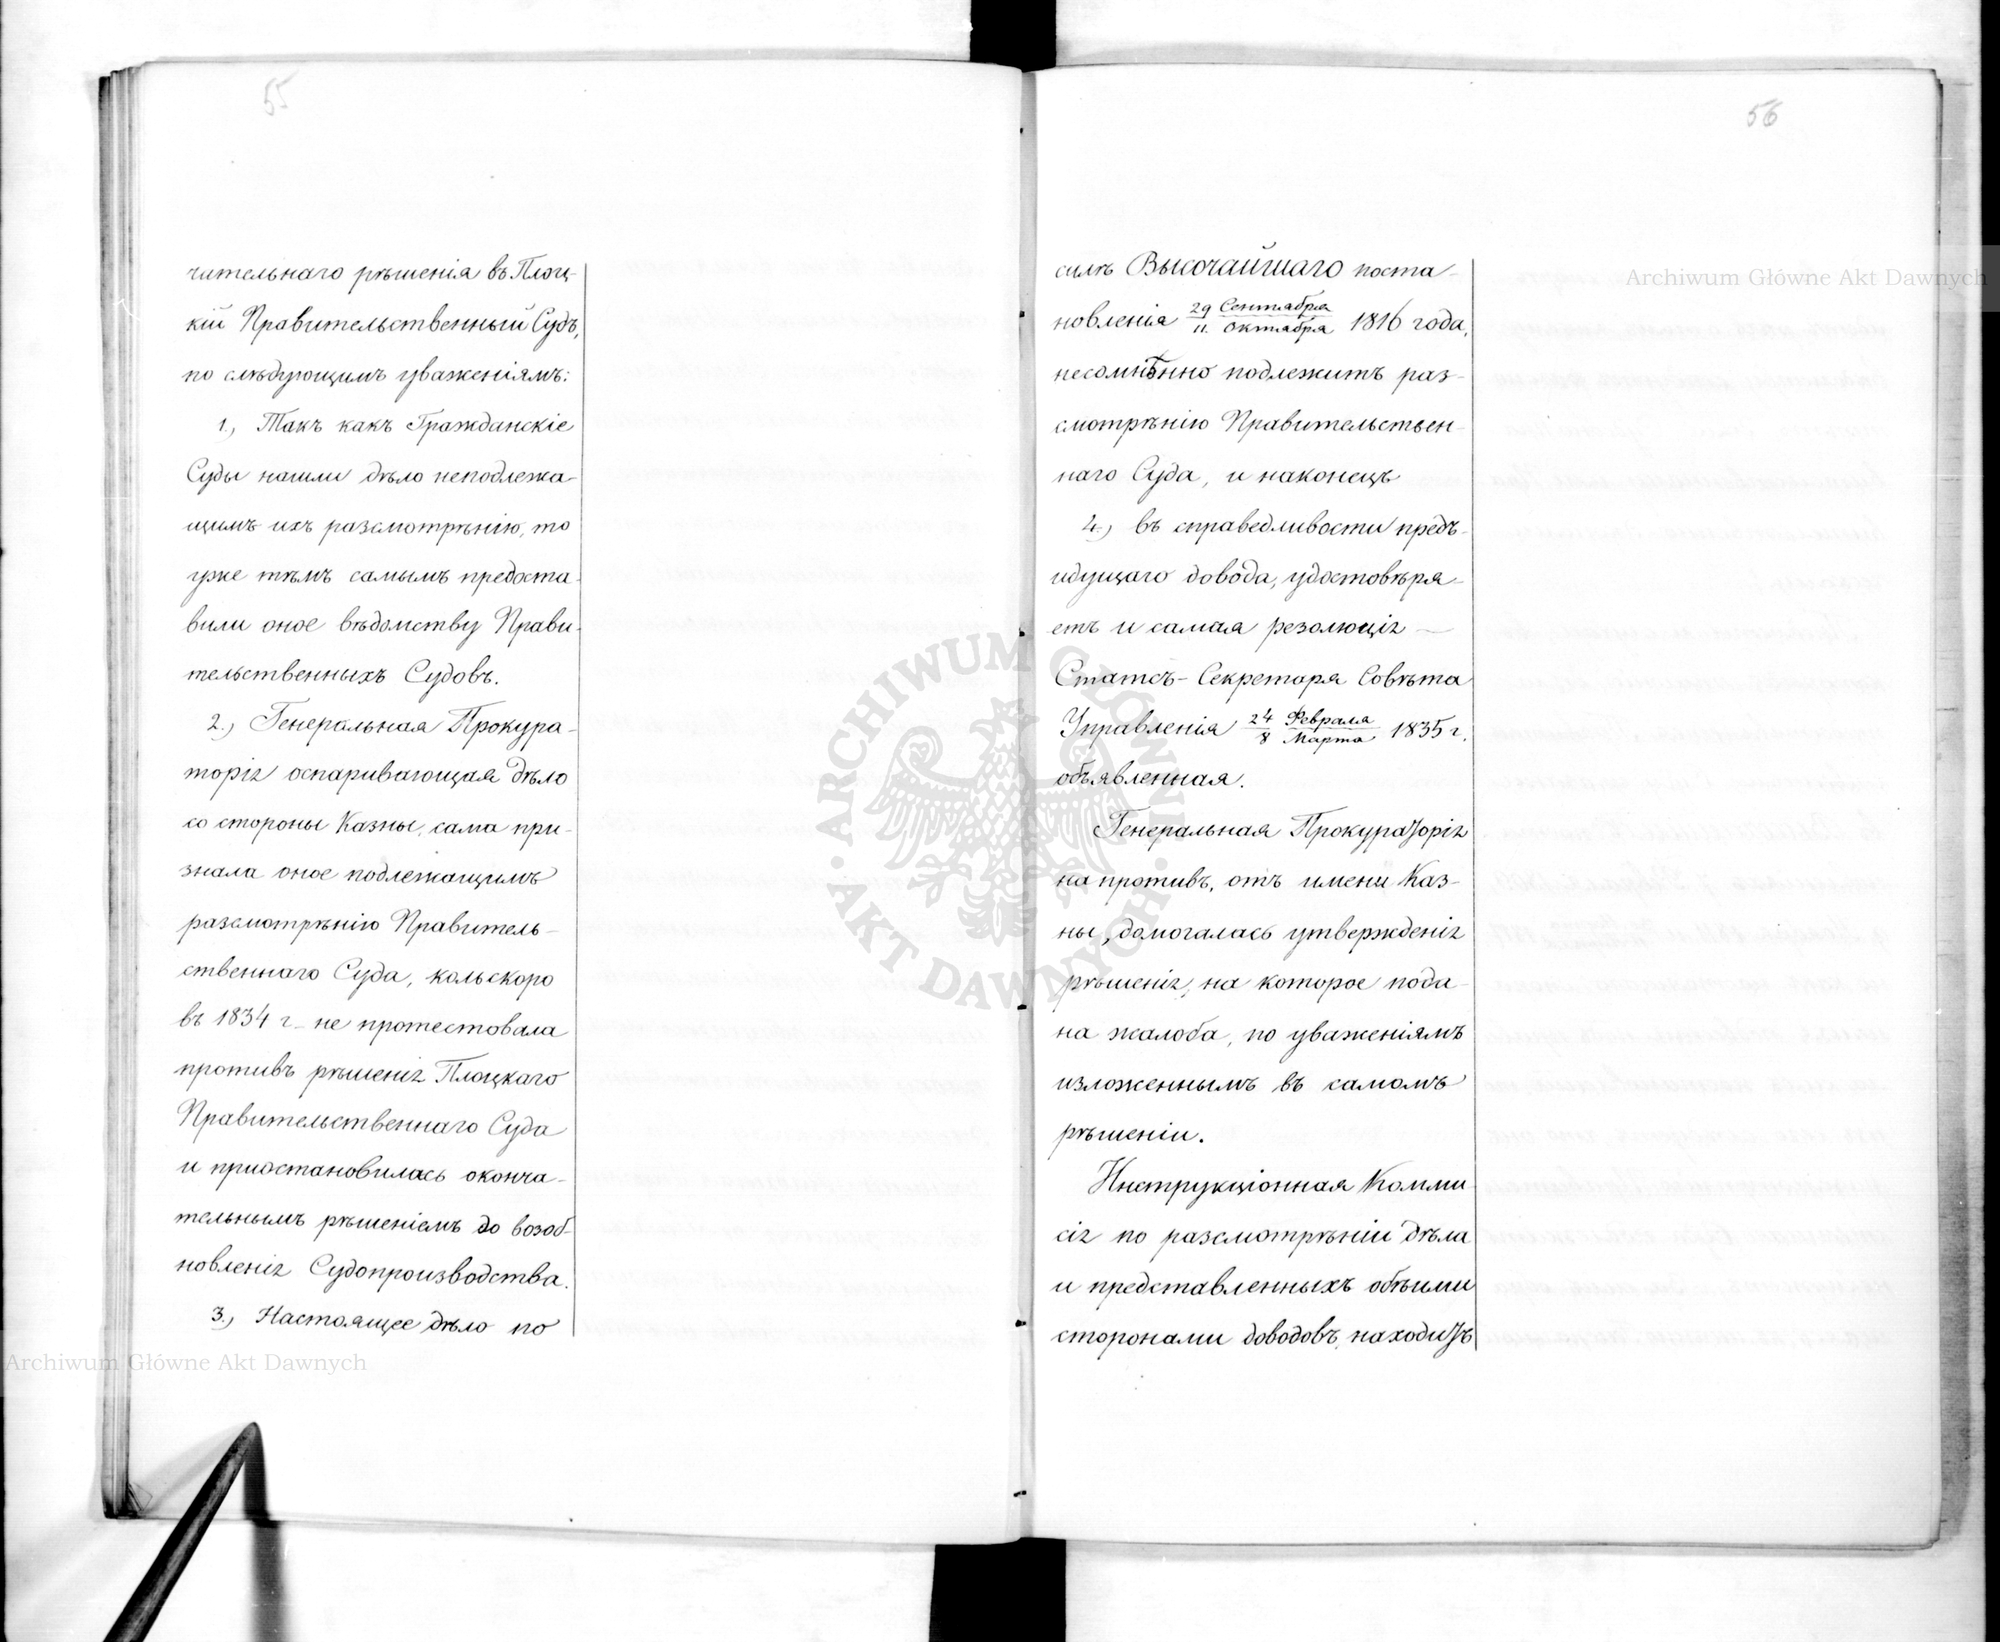 55
чительнаго рѣшенія въ Плоц-
кій Правительственный Судъ,
по слѣдующимъ уваженіямъ:
1., Такъ какъ Гражданскіе
Суды нашли дѣло неподлежа-
щимъ ихъ разсмотрѣнію, то
уже тѣмъ самымъ предоста-
вили оное вѣдомству Прави-
тельственныхъ Судовъ.
2., Генеральная Прокура-
торія оспаривающая дѣло
со стороны Казны, сама при-
знала оное подлежащимъ
разсмотрѣнію Правитель-
ственнаго Суда, кольскоро
въ 1834 г. не протестовала
противъ рѣшенія Плоцкаго
Правительственнаго Суда
и пріостановилась оконча-
тельнымъ рѣшеніемъ до возоб-
новленія Судопроизводства.
3., Настоящее дѣло по
56
силѣ Высочайшаго поста-
новленія 29 Сентября / 11. Октября 1816 года,
несомнѣнно подлежитъ раз-
смотрѣнію Правительствен-
наго Суда, и наконецъ
4., въ справедливости предъ-
идущаго довода, удостовѣря-
етъ и самая резолюція —
Статсъ-Секретаря Совѣта
Управленія 24 Февраля / 8 Марта 1835 г.
объявленная.
Генеральная Прокураторія
на противъ, отъ имени Каз-
ны, домогалась утвержденія
рѣшенія, на которое пода-
на жалоба, по уваженіямъ
изложеннымъ въ самомъ
рѣшеніи.
Инструкціонная Комми-
сія по разсмотрѣніи дѣла
и представленныхъ обѣими
сторонами доводовъ, находитъ
Archiwum Główne Akt Dawnych
Archiwum Główne Akt Dawnych
ARCHIWUM GŁÓWNE AKT DAWNYCH